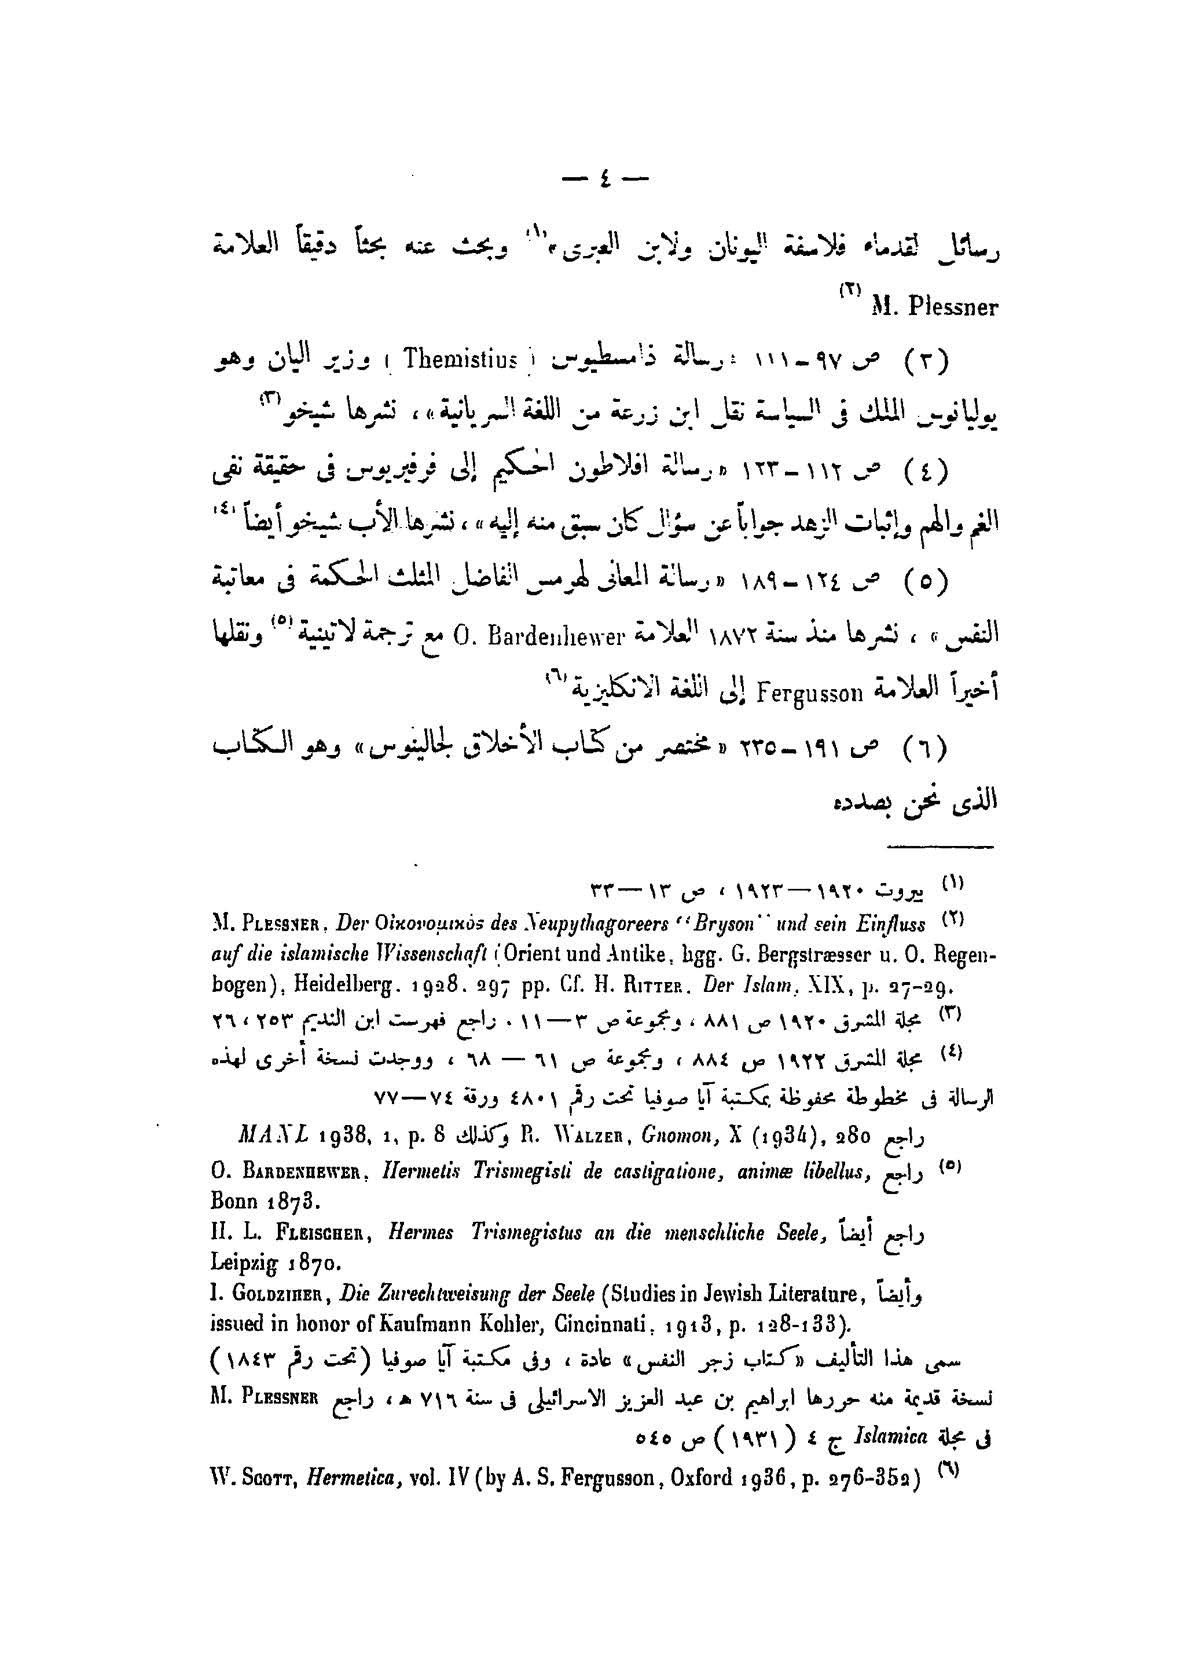 — ٤ —
رسائل لقدماء فلاسفة اليونان ولابن العبرى»(١) وبحث عنه بحثاً دقيقاً العلامة
M. Plessner (٢)
(٣) ص ٩٧–١١١ «رسالة ذامسطيوس (Themistius) وزير اليان وهو
يوليانوس الملك فى السياسة نقل ابن زرعة من اللغة السريانية» ، نشرها شيخو(٣)
(٤) ص ١١٢–١٢٣ «رسالة افلاطون الحكيم إلى فرفيريوس فى حقيقة نفى
الغم والهم وإثبات الزهد جواباً عن سؤال كان سبق منه إليه» ، نشرها الأب شيخو أيضاً(٤)
(٥) ص ١٢٤–١٨٩ «رسالة المعانى لهرمس الفاضل المثلث الحكمة فى معاتبة
النفس» ، نشرها منذ سنة ١٨٧٢ العلامة O. Bardenhewer مع ترجمة لاتينية(٥) ونقلها
أخيراً العلامة Fergusson إلى اللغة الانكليزية(٦)
(٦) ص ١٩١–٢٣٥ «مختصر من كتاب الأخلاق لجالينوس» وهو الكتاب
الذى نحن بصدده
(١) بيروت ١٩٢٠—١٩٢٣ ، ص ١٣—٣٣
(٢) M. PLESSNER, Der Οἰκονομικὸς des Neupythagoreers "Bryson" und sein Einfluss
auf die islamische Wissenschaft (Orient und Antike, hgg. G. Bergstræsser u. O. Regen-
bogen), Heidelberg. 1928. 297 pp. Cf. H. RITTER. Der Islam, XIX, p. 27-29.
(٣) مجلة المشرق ١٩٢٠ ص ٨٨١ ، ومجموعة ص ٣—١١ . راجع فهرست ابن النديم ٢٥٣ ، ٢٦
(٤) مجلة المشرق ١٩٢٢ ص ٨٨٤ ، ومجموعة ص ٦١ — ٦٨ ، ووجدت نسخة أخرى لهذه
الرسالة فى مخطوطة محفوظة بمكتبة آيا صوفيا تحت رقم ٤٨٠١ ورقة ٧٤—٧٧
راجع R. WALZER, Gnomon, X (1934), 280 وكذلك MANL 1938, 1, p. 8
(٥) راجع O. BARDENHEWER, Hermetis Trismegisti de castigatione, animæ libellus,
Bonn 1873.
راجع أيضاً H. L. FLEISCHER, Hermes Trismegistus an die menschliche Seele,
Leipzig 1870.
وأيضاً I. GOLDZIHER, Die Zurechtweisung der Seele (Studies in Jewish Literature,
issued in honor of Kaufmann Kohler, Cincinnati, 1913, p. 128-133).
سمى هذا التأليف «كتاب زجر النفس» عادة ، وفى مكتبة آيا صوفيا (تحت رقم ١٨٤٣)
نسخة قديمة منه حررها ابراهيم بن عبد العزيز الاسرائيلى فى سنة ٧١٦ ه ، راجع M. PLESSNER
فى مجلة Islamica ج ٤ (١٩٣١) ص ٥٤٥
(٦) W. SCOTT, Hermetica, vol. IV (by A. S. Fergusson, Oxford 1936, p. 276-352)